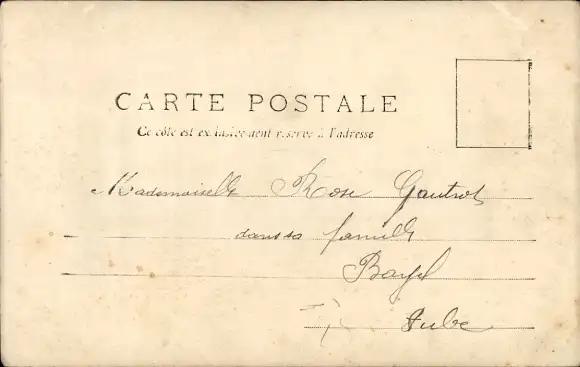 CARTE POSTALE
Ce côté est exclusivement réservé à l'adresse
Mademoiselle Rose Gautrot
dans sa famille
Bayel
Aube